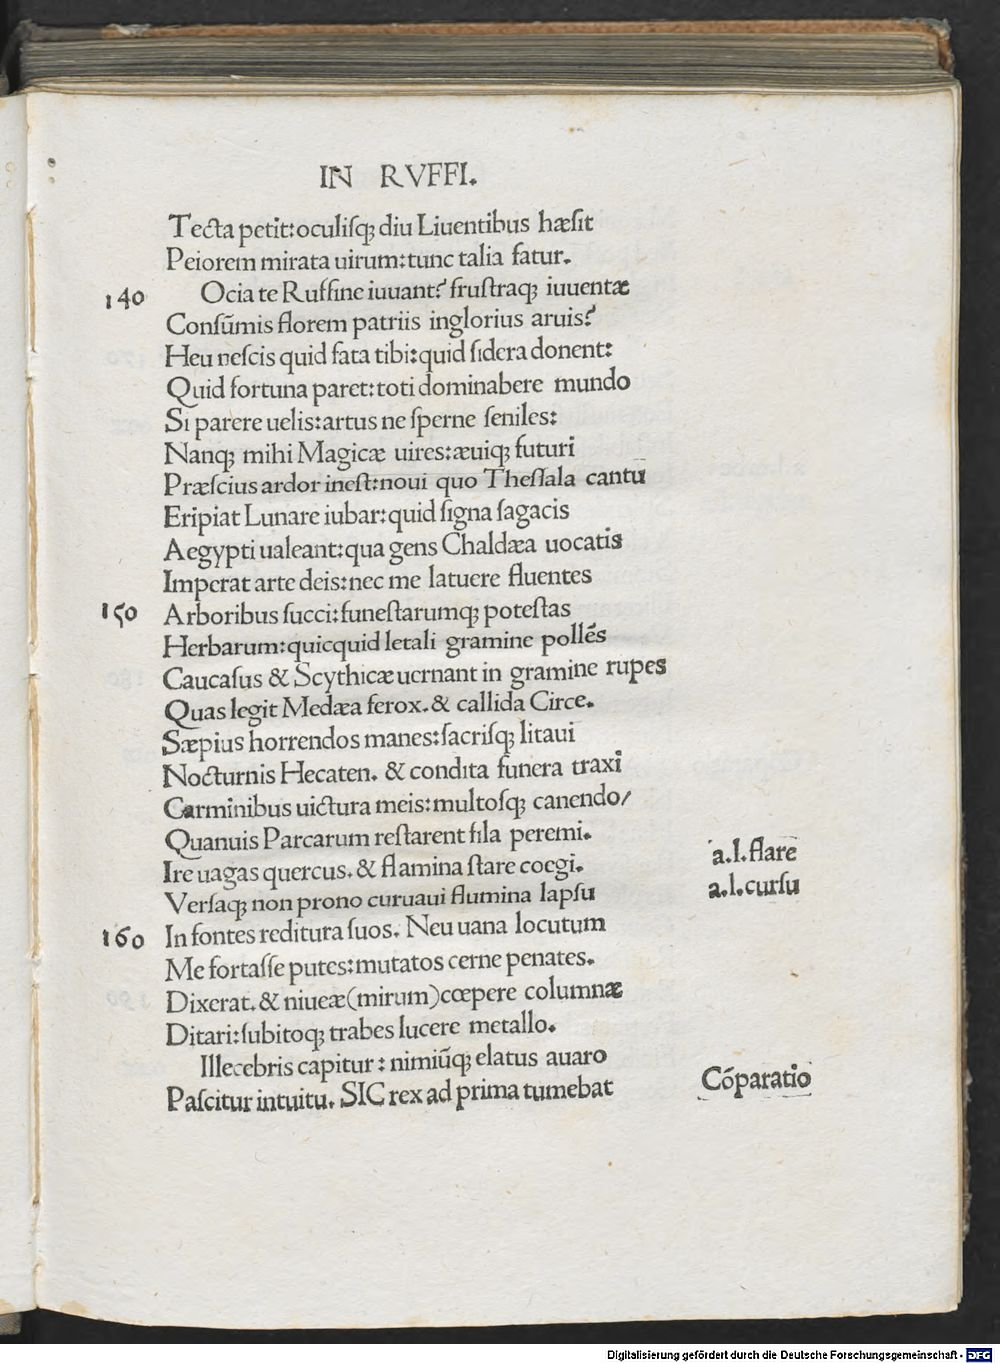 IN RVFFI.
Tecta petit:oculiſqꝫ diu Liuentibus hæſit
Peiorem mirata uirum:tunc talia fatur.
140 Ocia te Ruffine iuuant? fruſtraqꝫ iuuentæ
Conſūmis florem patriis inglorius aruis?
Heu neſcis quid fata tibi:quid ſidera donent:
Quid fortuna paret:toti dominabere mundo
Si parere uelis:artus ne ſperne ſeniles:
Nanqꝫ mihi Magicæ uires:æuiqꝫ futuri
Præſcius ardor ineſt:noui quo Theſſala cantu
Eripiat Lunare iubar:quid ſigna ſagacis
Aegypti ualeant:qua gens Chaldæa uocatis
Imperat arte deis:nec me latuere fluentes
150 Arboribus ſucci:funeſtarumqꝫ poteſtas
Herbarum:quicquid letali gramine pollēs
Caucaſus & Scythicæ uernant in gramine rupes
Quas legit Medæa ferox.& callida Circe.
Sæpius horrendos manes:ſacriſqꝫ litaui
Nocturnis Hecaten. & condita funera traxi
Carminibus uictura meis:multoſqꝫ canendo/
Quanuis Parcarum reſtarent fila peremi.
Ire uagas quercus. & flamina ſtare coegi. a.l.flare
Verſaqꝫ non prono curuaui flumina lapſu a.l.curſu
160 In fontes reditura ſuos. Neu uana locutum
Me fortaſſe putes:mutatos cerne penates.
Dixerat.& niueæ(mirum)cœpere columnæ
Ditari:ſubitoqꝫ trabes lucere metallo.
Illecebris capitur: nimiūqꝫ elatus auaro
Paſcitur intuitu. SIC rex ad prima tumebat Cōparatio
Digitalisierung gefördert durch die Deutsche Forschungsgemeinschaft - DFG